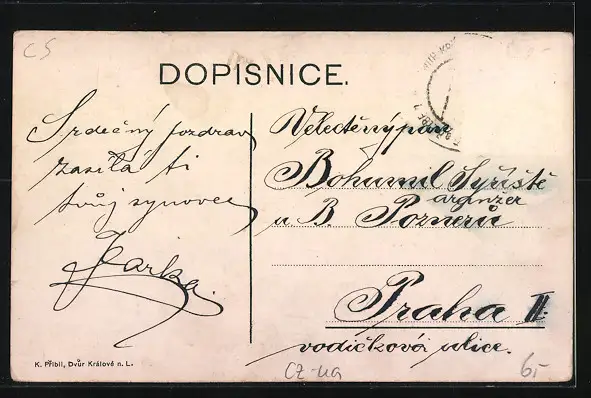 CS
DOPISNICE.
Srdečný pozdrav
zasílá ti
tvůj synovec
Jarka.
Velectěný pan
Bohumil Syřiště
aranžer
u B. Poznerů
Praha II.
vodičková ulice.
K. Přibil, Dvůr Králové n. L.
CZ-ua
6,-